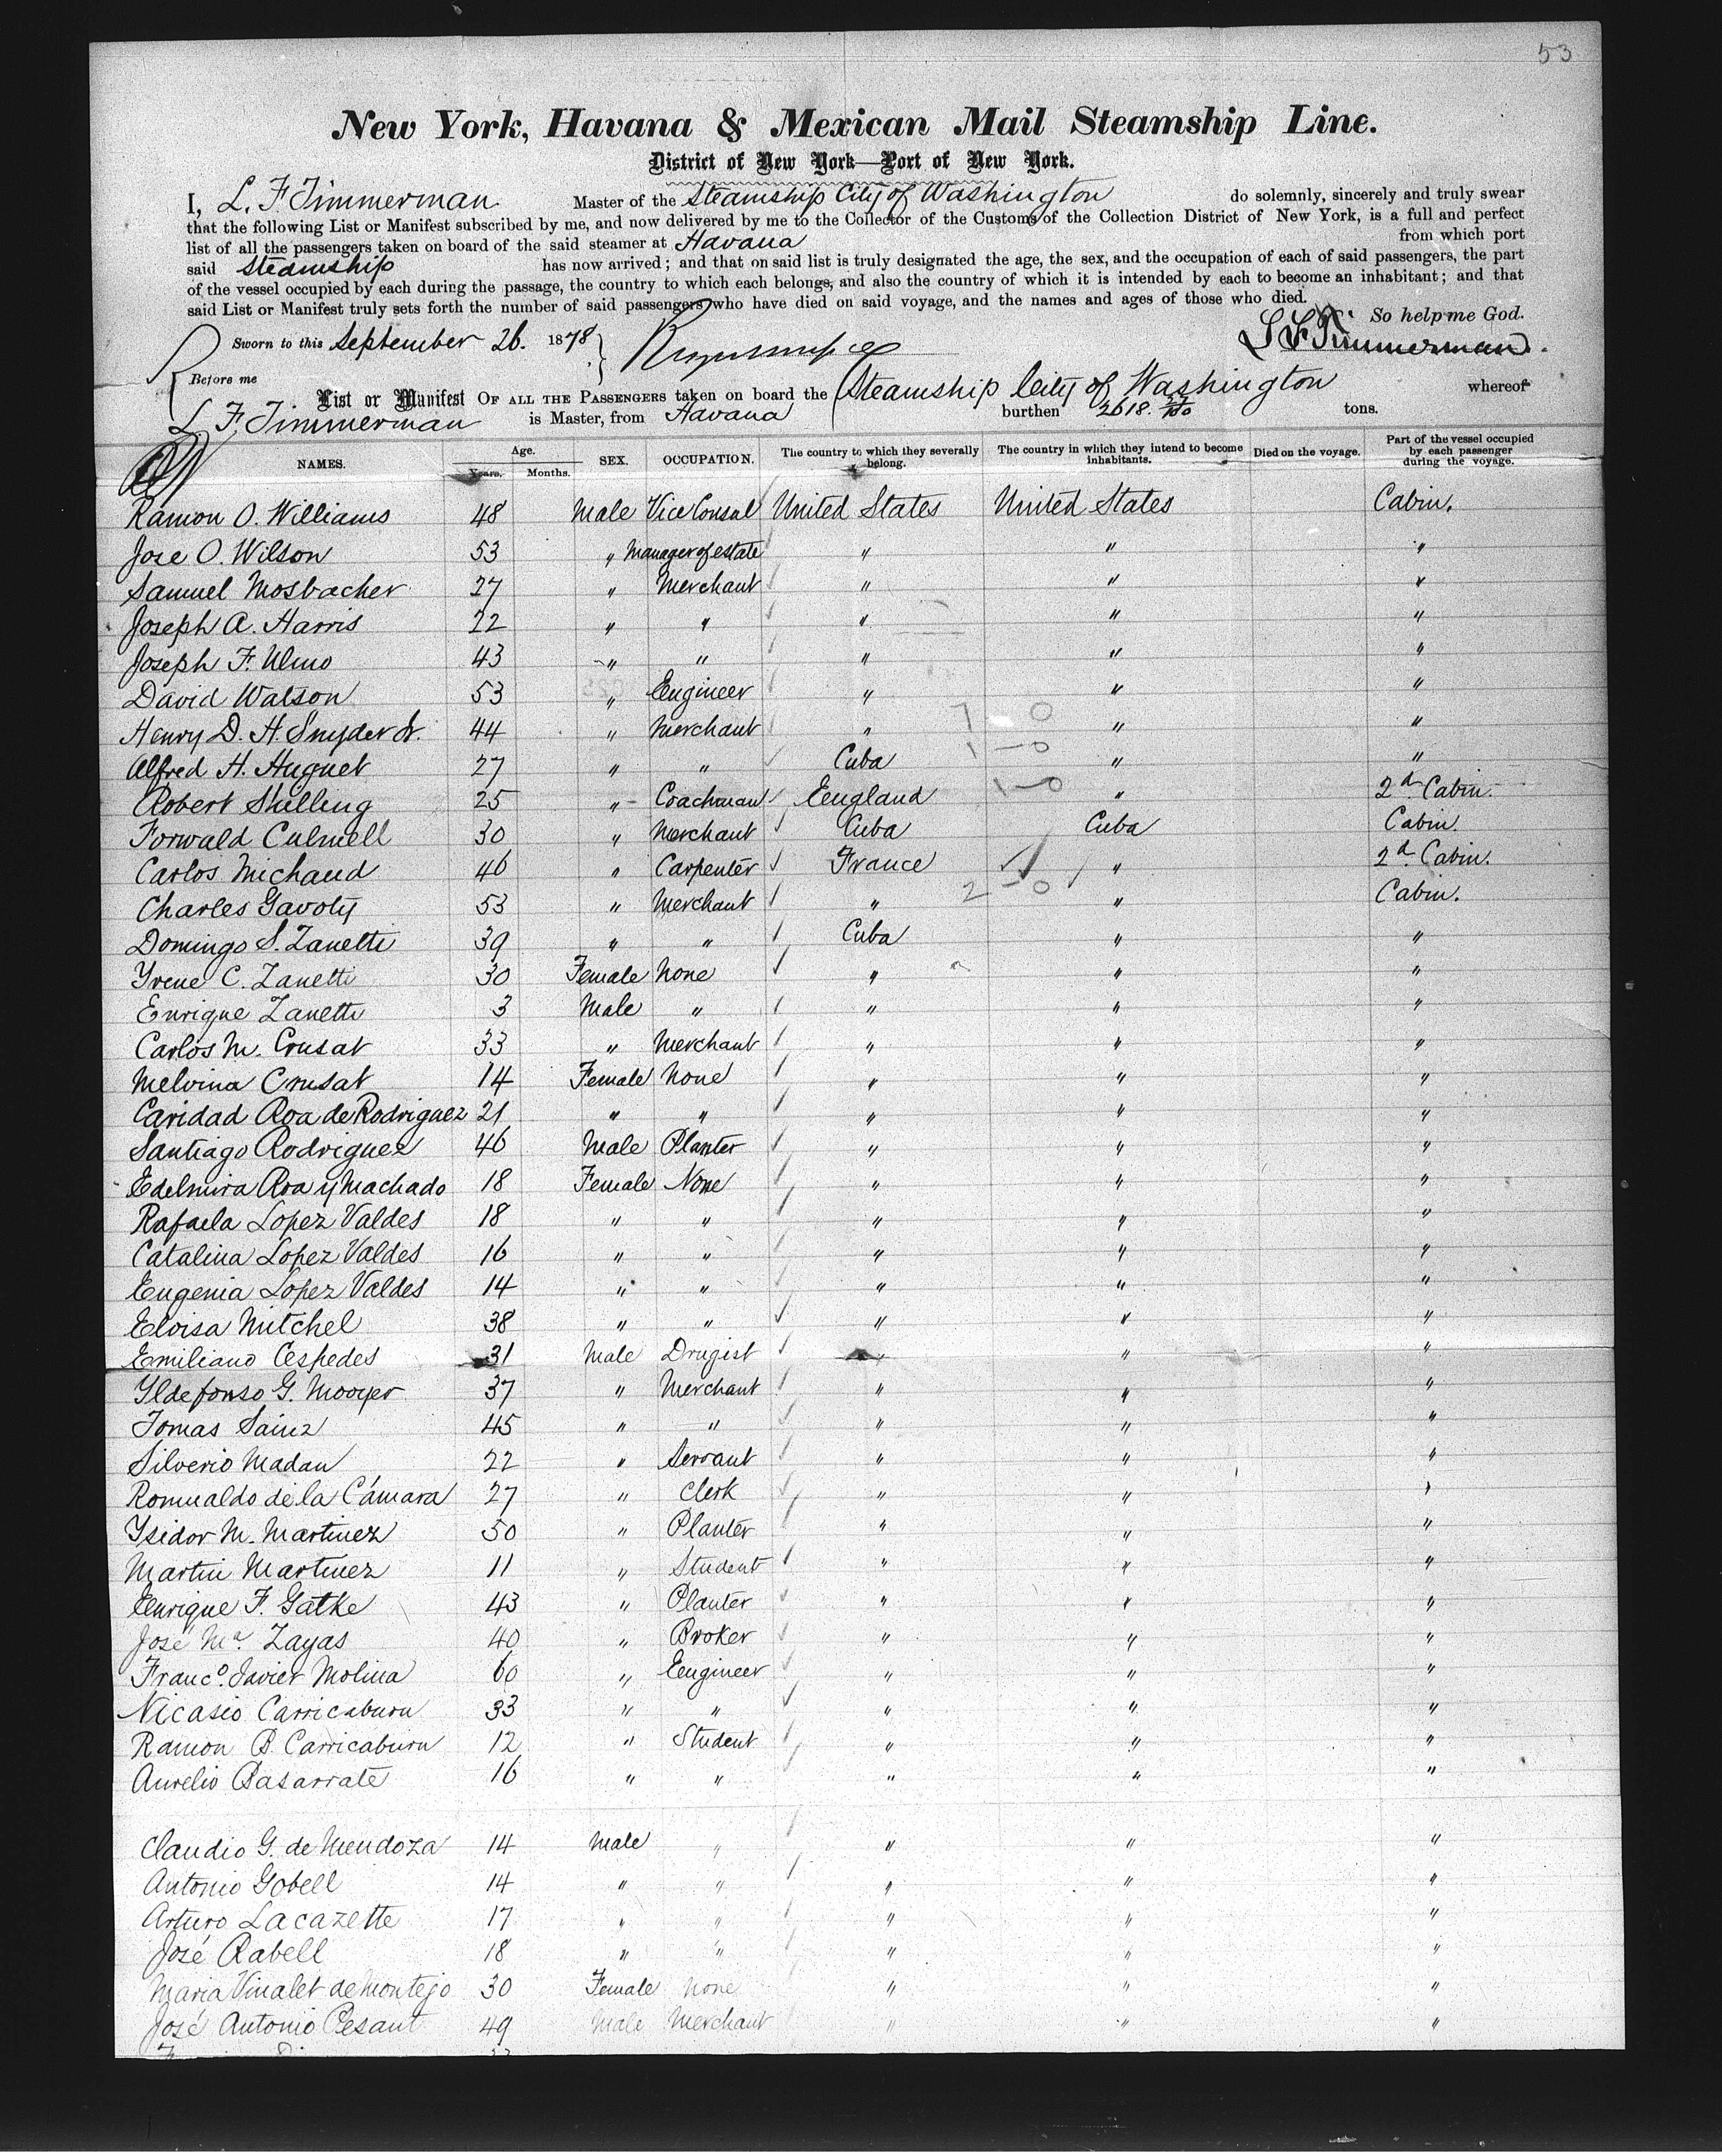 53
New York, Havana & Mexican Mail Steamship Line.
District of New York—Port of New York.
I, L. F. Timmerman Master of the Steamship City of Washington do solemnly, sincerely and truly swear
that the following List or Manifest subscribed by me, and now delivered by me to the Collector of the Customs of the Collection District of New York, is a full and perfect
list of all the passengers taken on board of the said steamer at Havana from which port
said Steamship has now arrived; and that on said list is truly designated the age, the sex, and the occupation of each of said passengers, the part
of the vessel occupied by each during the passage, the country to which each belongs, and also the country of which it is intended by each to become an inhabitant; and that
said List or Manifest truly sets forth the number of said passengers who have died on said voyage, and the names and ages of those who died.
So help me God.
Sworn to this September 26. 1878 L F Timmerman.
Before me
List or Manifest OF ALL THE PASSENGERS taken on board the Steamship City of Washington whereof
L. F. Timmerman is Master, from Havana burthen 2618. tons.
NAMES. Age. Years. Months. SEX. OCCUPATION. The country to which they severally belong. The country in which they intend to become inhabitants. Died on the voyage. Part of the vessel occupied by each passenger during the voyage.
Ramon O. Williams 48 Male Vice Consul United States United States Cabin.
Jose O. Wilson 53 " Manager of estate " " "
Samuel Mosbacher 27 " Merchant " " "
Joseph A. Harris 22 " " " " "
Joseph F. Ulmo 43 " " " " "
David Watson 53 " Engineer " " "
Henry D. H. Snyder Jr. 44 " Merchant " " "
7 0
1 - 0
Alfred H. Huguet 27 " " Cuba " "
Robert Shilling 25 " Coachman England 1-0 " 2d. Cabin.
Forwald Culmell 30 " Merchant Cuba Cuba Cabin.
Carlos Michaud 46 " Carpenter France " 2d. Cabin.
Charles Gavoty 53 " Merchant " 2-0 " Cabin.
Domingo S. Zanetti 39 " " Cuba " "
Yrene C. Zanetti 30 Female None " " "
Enrique Zanetti 3 Male " " " "
Carlos M. Crusat 33 " Merchant " " "
Melvina Crusat 14 Female None " " "
Caridad Roa de Rodriguez 21 " " " " "
Santiago Rodriguez 46 Male Planter " " "
Edelmira Roa y Machado 18 Female None " " "
Rafaela Lopez Valdes 18 " " " " "
Catalina Lopez Valdes 16 " " " " "
Eugenia Lopez Valdes 14 " " " " "
Eloisa Mitchel 38 " " " " "
Emiliano Cespedes 31 Male Drugist " " "
Yldefonso G. Mooyer 37 " Merchant " " "
Tomas Sainz 45 " " " " "
Silverio Madan 22 " Servant " " "
Romualdo de la Cámara 27 " Clerk " " "
Ysidor M. Martinez 50 " Planter " " "
Martin Martinez 11 " Student " " "
Enrique F. Gatke 43 " Planter " " "
José Ma. Zayas 40 " Broker " " "
Franco. Javier Molina 60 " Engineer " " "
Nicasio Carricaburu 33 " " " " "
Ramon B. Carricaburu 12 " Student " " "
Aurelio Basarrate 16 " " " " "
Claudio G. de Mendoza 14 Male " " " "
Antonio Gobell 14 " " " " "
Arturo Lacazette 17 " " " " "
José Rabell 18 " " " " "
Maria Vinalet de Montejo 30 Female None " " "
José Antonio Pesant 49 Male Merchant " " "